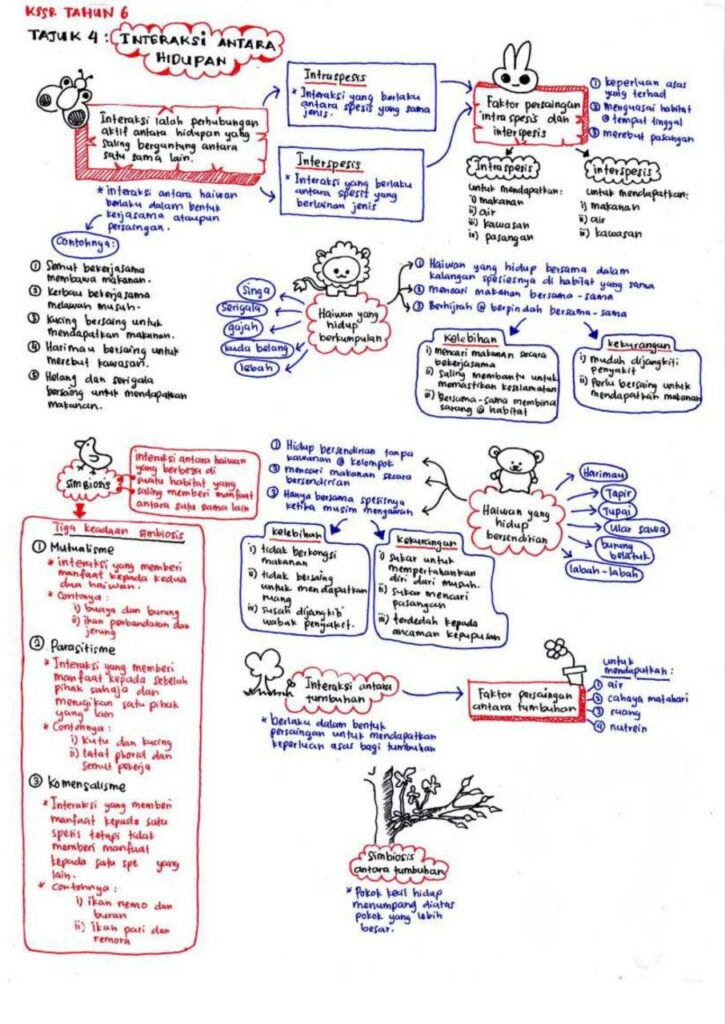 KSSR TAHUN 6
TAJUK 4 : INTERAKSI ANTARA
HIDUPAN
Interaksi ialah perhubungan
aktif antara hidupan yang
saling bergantung antara
satu sama lain.
* interaksi antara haiwan
berlaku dalam bentuk
kerjasama ataupun
persaingan.
Contohnya:
① Semut bekerjasama
membawa makanan.
② Kerbau bekerjasama
melawan musuh.
③ Kucing bersaing untuk
mendapatkan makanan.
④ Harimau bersaing untuk
merebut kawasan.
⑤ Helang dan serigala
bersaing untuk mendapatkan
makanan.
Intraspesis
* Interaksi yang berlaku
antara spesis yang sama
jenis.
Interspesis
* Interaksi yang berlaku
antara spesis yang
berlainan jenis
Faktor persaingan
intraspesis dan
interspesis
① keperluan asas
yang terhad
② menguasai habitat
@ tempat tinggal
③ merebut pasangan
Intraspesis
untuk mendapatkan:
i) makanan
ii) air
iii) kawasan
iv) pasangan
interspesis
untuk mendapatkan:
i) makanan
ii) air
iii) kawasan
Haiwan yang
hidup
berkumpulan
Singa
Serigala
gajah
kuda belang
lebah
① Haiwan yang hidup bersama dalam
kalangan spesiesnya di habitat yang sama
② mencari makanan bersama-sama
③ Berhijrah @ berpindah bersama-sama
Kelebihan
i) mencari makanan secara
bekerjasama
ii) saling membantu untuk
memastikan keselamatan
iii) Bersama-sama membina
sarang @ habitat
kekurangan
i) mudah dijangkiti
penyakit
ii) Perlu bersaing untuk
mendapatkan makanan
simbiosis
interaksi antara haiwan
yang berbeza di
suatu habitat yang
saling memberi manfaat
antara satu sama lain
Tiga keadaan simbiosis
① Mutualisme
* interaksi yang memberi
manfaat kepada kedua
dua haiwan.
* Contonya :
i) buaya dan burung
ii) ikan perbandatan dan
jerung
② Parasitisme
* Interaksi yang memberi
manfaat kepada sebelah
pihak sahaja dan
merugikan satu pihak
yang lain
* Contohnya :
i) kutu dan kucing
ii) lalat phorid dan
semut pekerja
③ Komensalisme
* Interaksi yang memberi
manfaat kepada satu
spesis tetapi tidak
memberi manfaat
kepada satu spe yang
lain.
* contohnya :
i) ikan nemo dan
buran
ii) Ikan pari dan
remora
① Hidup bersendirian tanpa
kawanan @ kelompok
② mencari makanan secara
bersendirian
③ Hanya bersama spesisnya
ketika musim mengawan
Haiwan yang
hidup
bersendirian
Harimau
Tapir
Tupai
Ular sawa
burung
belatuk
labah-labah
kelebihan
i) tidak berkongsi
makanan
ii) tidak bersaing
untuk mendapatkan
ruang
iv) susah dijangkiti
wabak penyakit.
kekurangan
i) sukar untuk
mempertahankan
diri dari musuh.
ii) sukar mencari
pasangan
iii) terdedah kepada
ancaman kepupusan
Interaksi antara
tumbuhan
* berlaku dalam bentuk
persaingan untuk mendapatkan
keperluan asas bagi tumbuhan
Faktor persaingan
antara tumbuhan
untuk
mendapatkan :
① air
② cahaya matahari
③ ruang
④ nutrein
Simbiosis
antara tumbuhan
* Pokok kecil hidup
menumpang diatas
pokok yang lebih
besar.